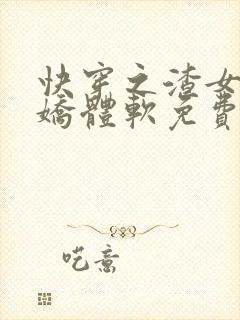 快穿之渣女
嬌體軟免費
呓意